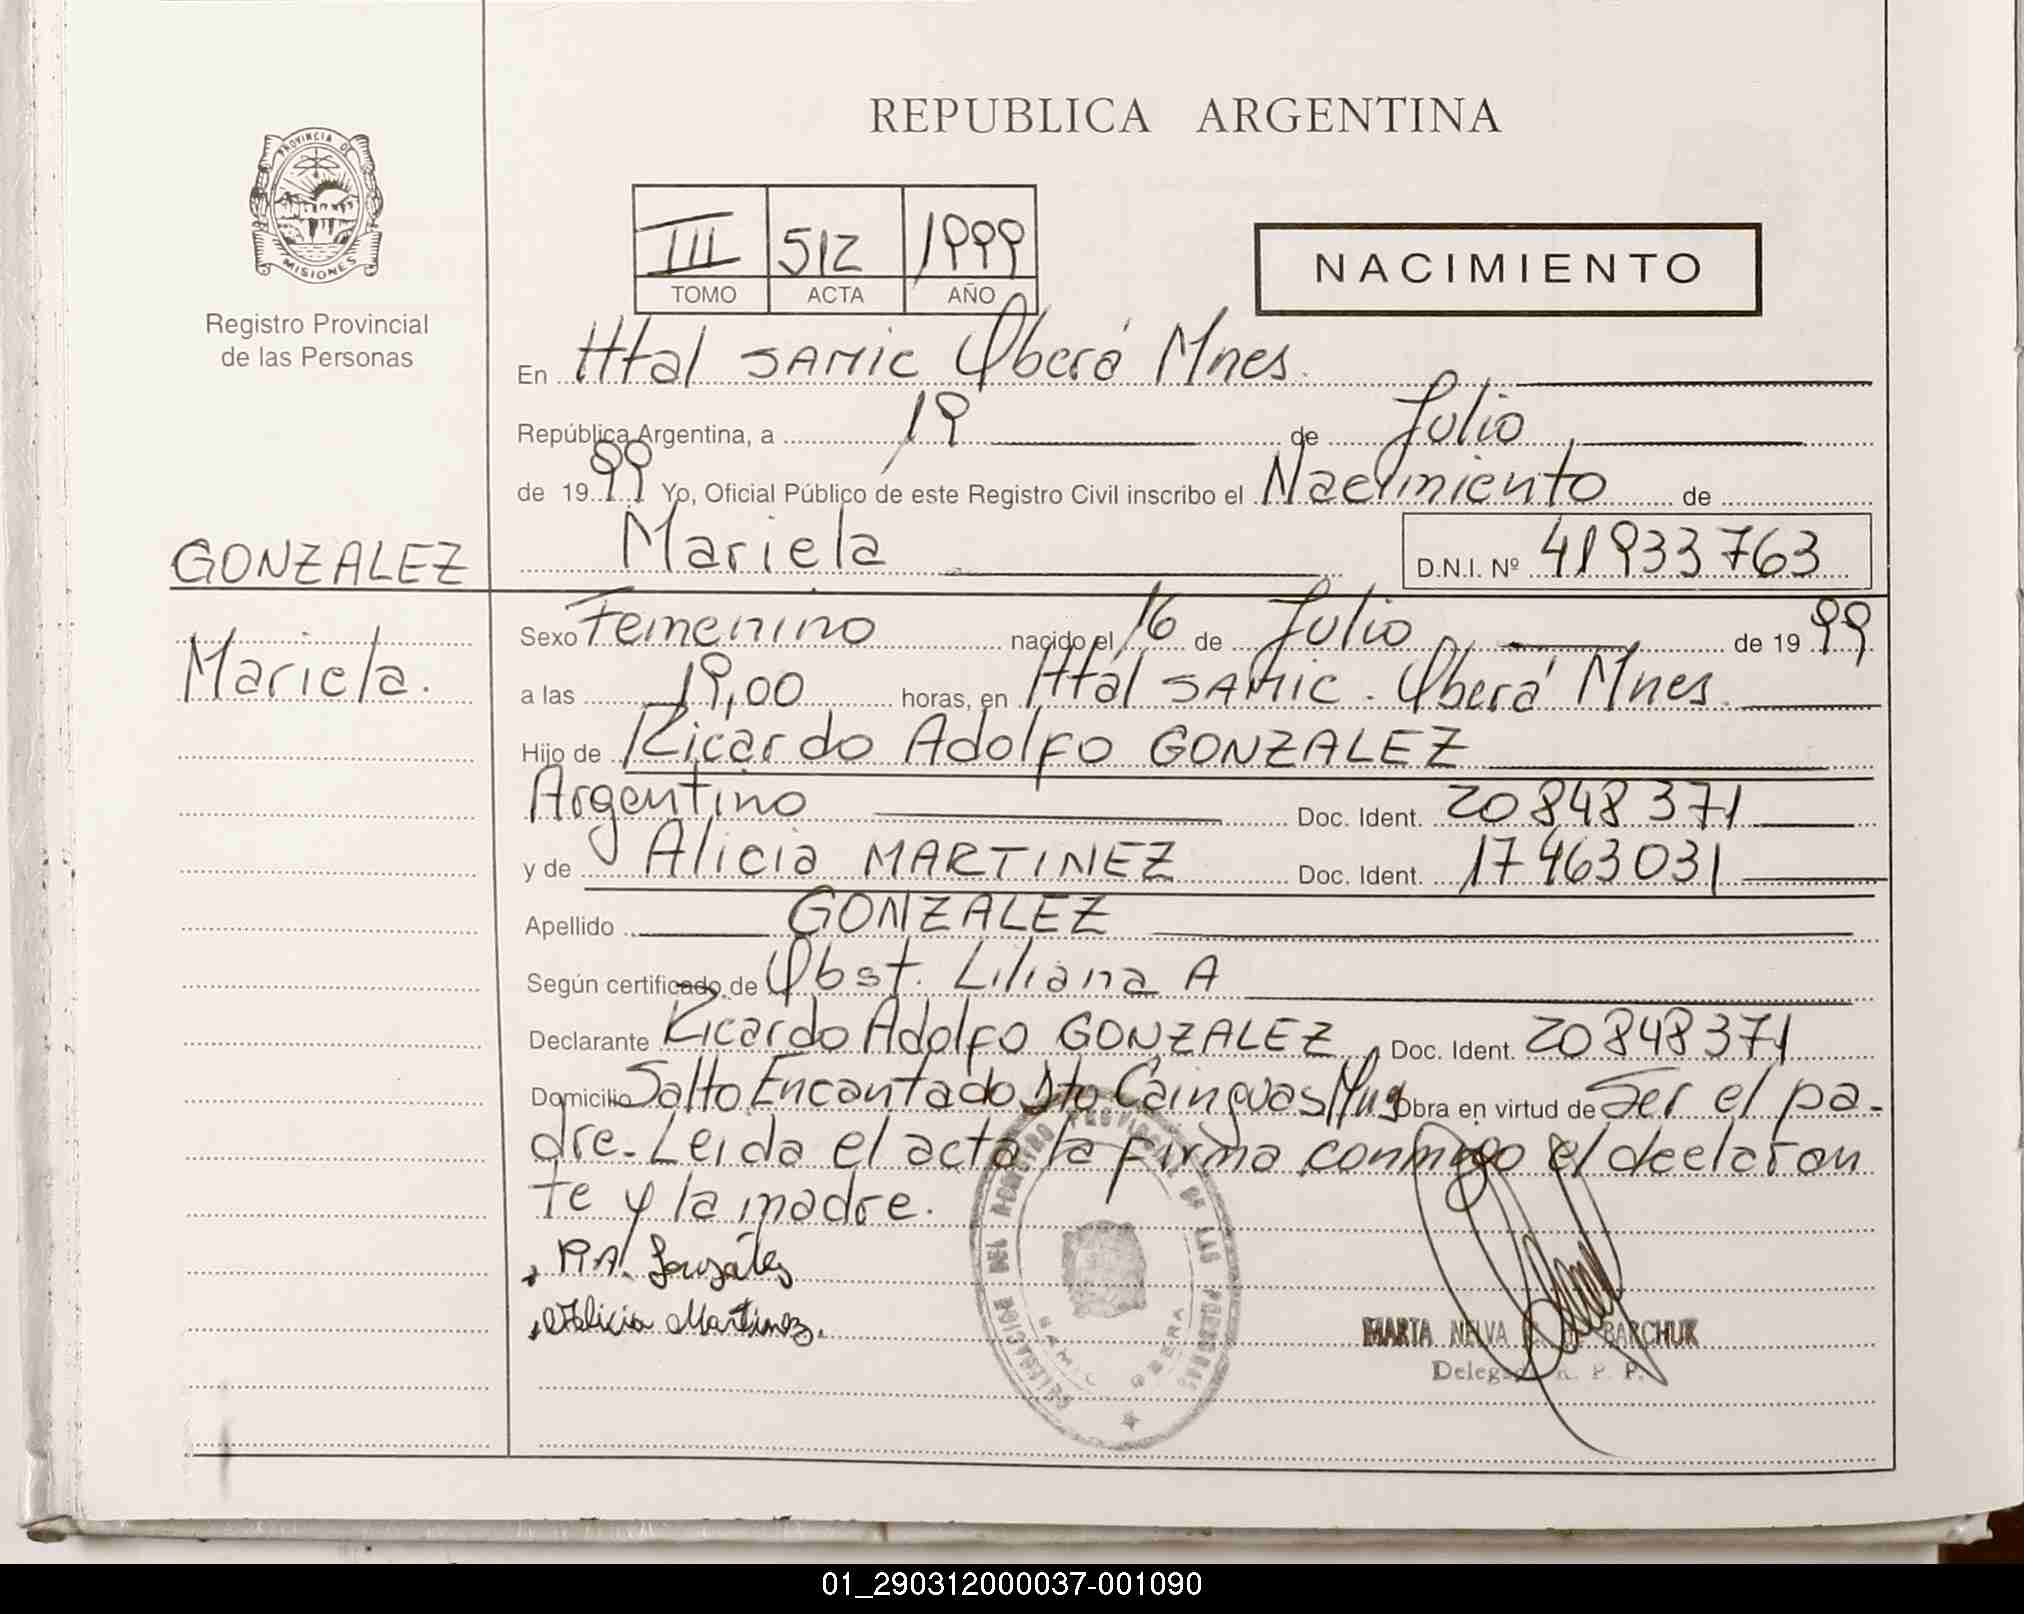 REPUBLICA ARGENTINA
PROVINCIA DE
MISIONES
Registro Provincial
de las Personas
III 512 1999
TOMO ACTA AÑO
NACIMIENTO
En Htal SAMIC Oberá Mnes.
República Argentina, a 19 de Julio
de 1999 Yo, Oficial Público de este Registro Civil inscribo el Nacimiento de
GONZALEZ
Mariela
D.N.I. Nº 41933763
Mariela.
Sexo Femenino nacido el 16 de Julio de 1999
a las 19,00 horas, en Htal SAMIC. Oberá Mnes.
Hijo de Ricardo Adolfo GONZALEZ
Argentino Doc. Ident. 20848371
y de Alicia MARTINEZ Doc. Ident. 17463031
Apellido GONZALEZ
Según certificado de Obst. Liliana A
Declarante Ricardo Adolfo GONZALEZ Doc. Ident. 20848371
Domicilio Salto Encantado Dto Cainguas Obra en virtud de Ser el pa-
dre. Leida el acta la firma conmigo el declaran
te y la madre.
R.A. González
Alicia Martinez.
DELEGACION DEL REGISTRO PROVINCIAL DE LAS PERSONAS
SAMIC OBERA
MARTA NELVA BARCHUK
R. P. P.
01_290312000037-001090